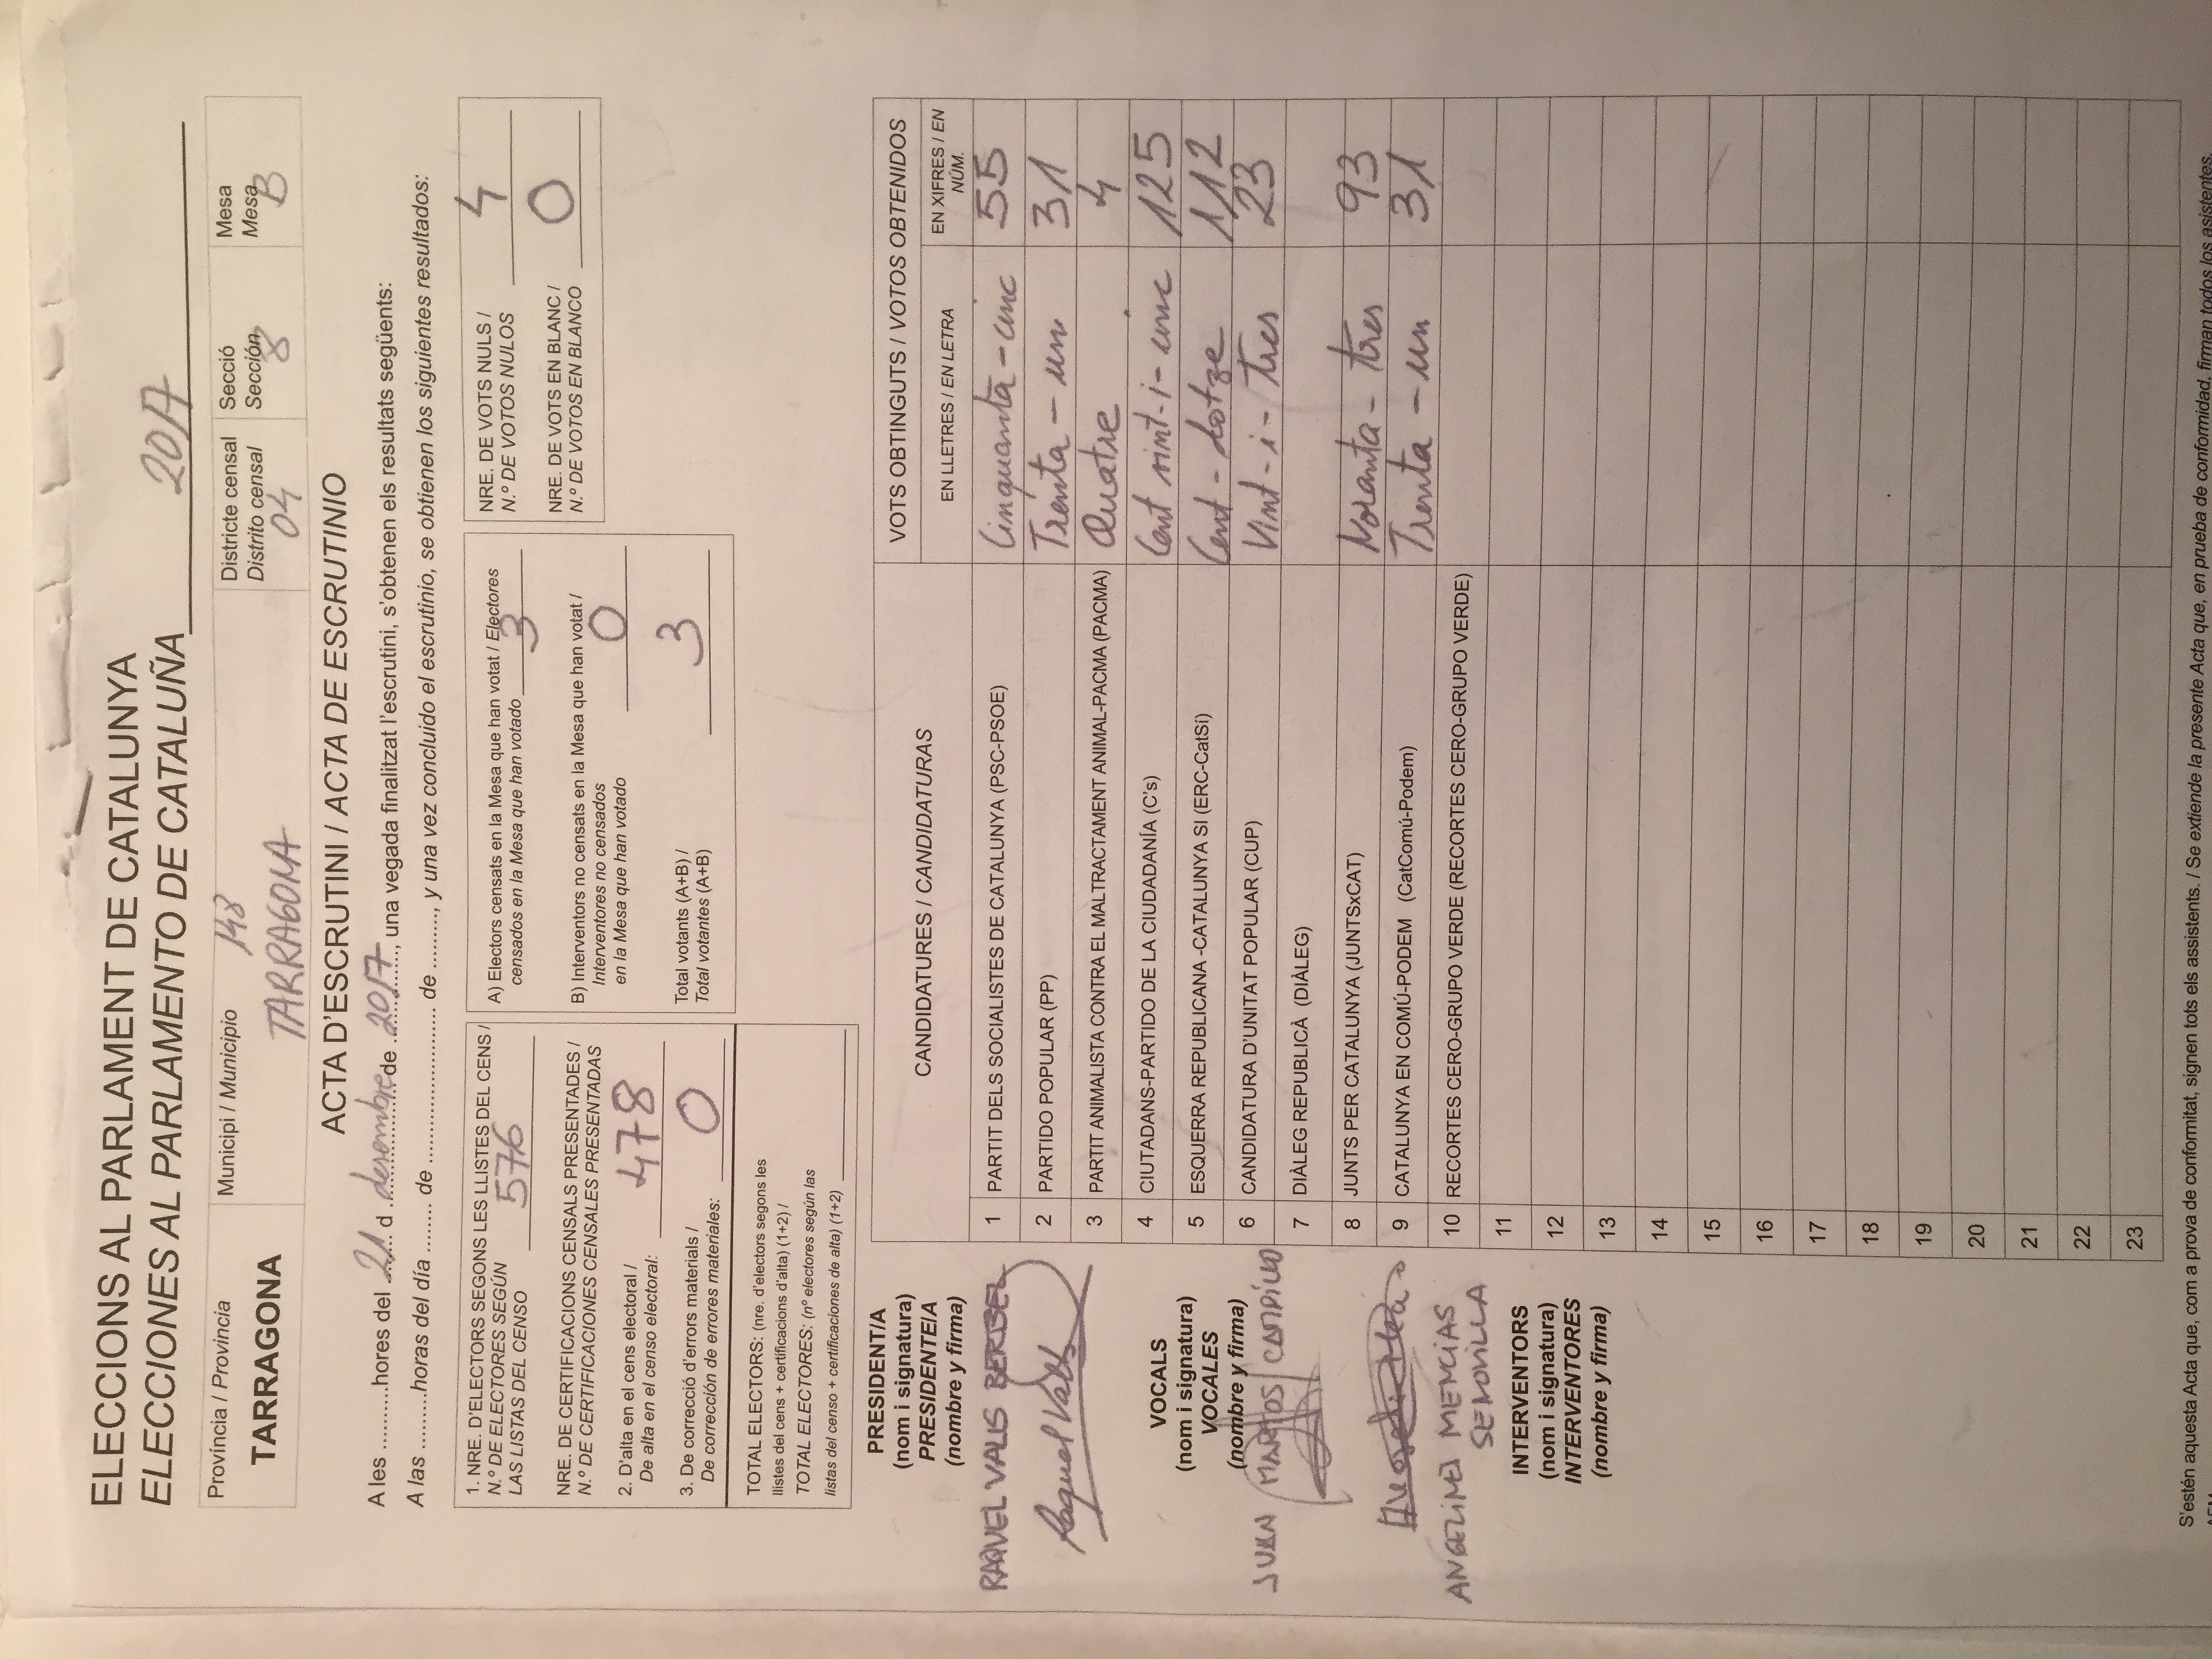 ELECCIONS AL PARLAMENT DE CATALUNYA
ELECCIONES AL PARLAMENTO DE CATALUÑA 2017
Província / Provincia
TARRAGONA
Municipi / Municipio 148
TARRAGONA
Districte censal
Distrito censal
04
Secció
Sección
8
Mesa
Mesa
B
ACTA D'ESCRUTINI / ACTA DE ESCRUTINIO
A les ..........hores del 21 d desembre de 2017, una vegada finalitzat l'escrutini, s'obtenen els resultats següents:
A las .........horas del día ........ de ......................... de ........., y una vez concluido el escrutinio, se obtienen los siguientes resultados:
1. NRE. D'ELECTORS SEGONS LES LLISTES DEL CENS /
N.º DE ELECTORES SEGÚN
LAS LISTAS DEL CENSO 576
NRE. DE CERTIFICACIONS CENSALS PRESENTADES /
N.º DE CERTIFICACIONES CENSALES PRESENTADAS
2. D'alta en el cens electoral /
De alta en el censo electoral: 478
3. De correcció d'errors materials /
De corrección de errores materiales: 0
TOTAL ELECTORS: (nre. d'electors segons les
llistes del cens + certificacions d'alta) (1+2) /
TOTAL ELECTORES: (nº electores según las
listas del censo + certificaciones de alta) (1+2)
A) Electors censats en la Mesa que han votat / Electores
censados en la Mesa que han votado 3
B) Interventors no censats en la Mesa que han votat /
Interventores no censados
en la Mesa que han votado 0
Total votants (A+B) /
Total votantes (A+B) 3
NRE. DE VOTS NULS /
N.º DE VOTOS NULOS 4
NRE. DE VOTS EN BLANC /
N.º DE VOTOS EN BLANCO 0
PRESIDENT/A
(nom i signatura)
PRESIDENTE/A
(nombre y firma)
RAQUEL VALLS BERBEL
Raquel Valls
VOCALS
(nom i signatura)
VOCALES
(nombre y firma)
JUAN MARTOS CAMPILLO
ANGELINES MENCIAS
SENOVILLA
INTERVENTORS
(nom i signatura)
INTERVENTORES
(nombre y firma)
CANDIDATURES / CANDIDATURAS
VOTS OBTINGUTS / VOTOS OBTENIDOS
EN LLETRES / EN LETRA
EN XIFRES / EN
NÚM.
1 PARTIT DELS SOCIALISTES DE CATALUNYA (PSC-PSOE) Cinquanta-cinc 55
2 PARTIDO POPULAR (PP) Trenta-un 31
3 PARTIT ANIMALISTA CONTRA EL MALTRACTAMENT ANIMAL-PACMA (PACMA) Quatre 4
4 CIUTADANS-PARTIDO DE LA CIUDADANÍA (C's) Cent vint-i-cinc 125
5 ESQUERRA REPUBLICANA -CATALUNYA SI (ERC-CatSí) Cent-dotze 112
6 CANDIDATURA D'UNITAT POPULAR (CUP) Vint-i-tres 23
7 DIÀLEG REPUBLICÀ (DIÀLEG)
8 JUNTS PER CATALUNYA (JUNTSxCAT) Noranta-tres 93
9 CATALUNYA EN COMÚ-PODEM (CatComú-Podem) Trenta-un 31
10 RECORTES CERO-GRUPO VERDE (RECORTES CERO-GRUPO VERDE)
11
12
13
14
15
16
17
18
19
20
21
22
23
S'estén aquesta Acta que, com a prova de conformitat, signen tots els assistents. / Se extiende la presente Acta que, en prueba de conformidad, firman todos los asistentes.